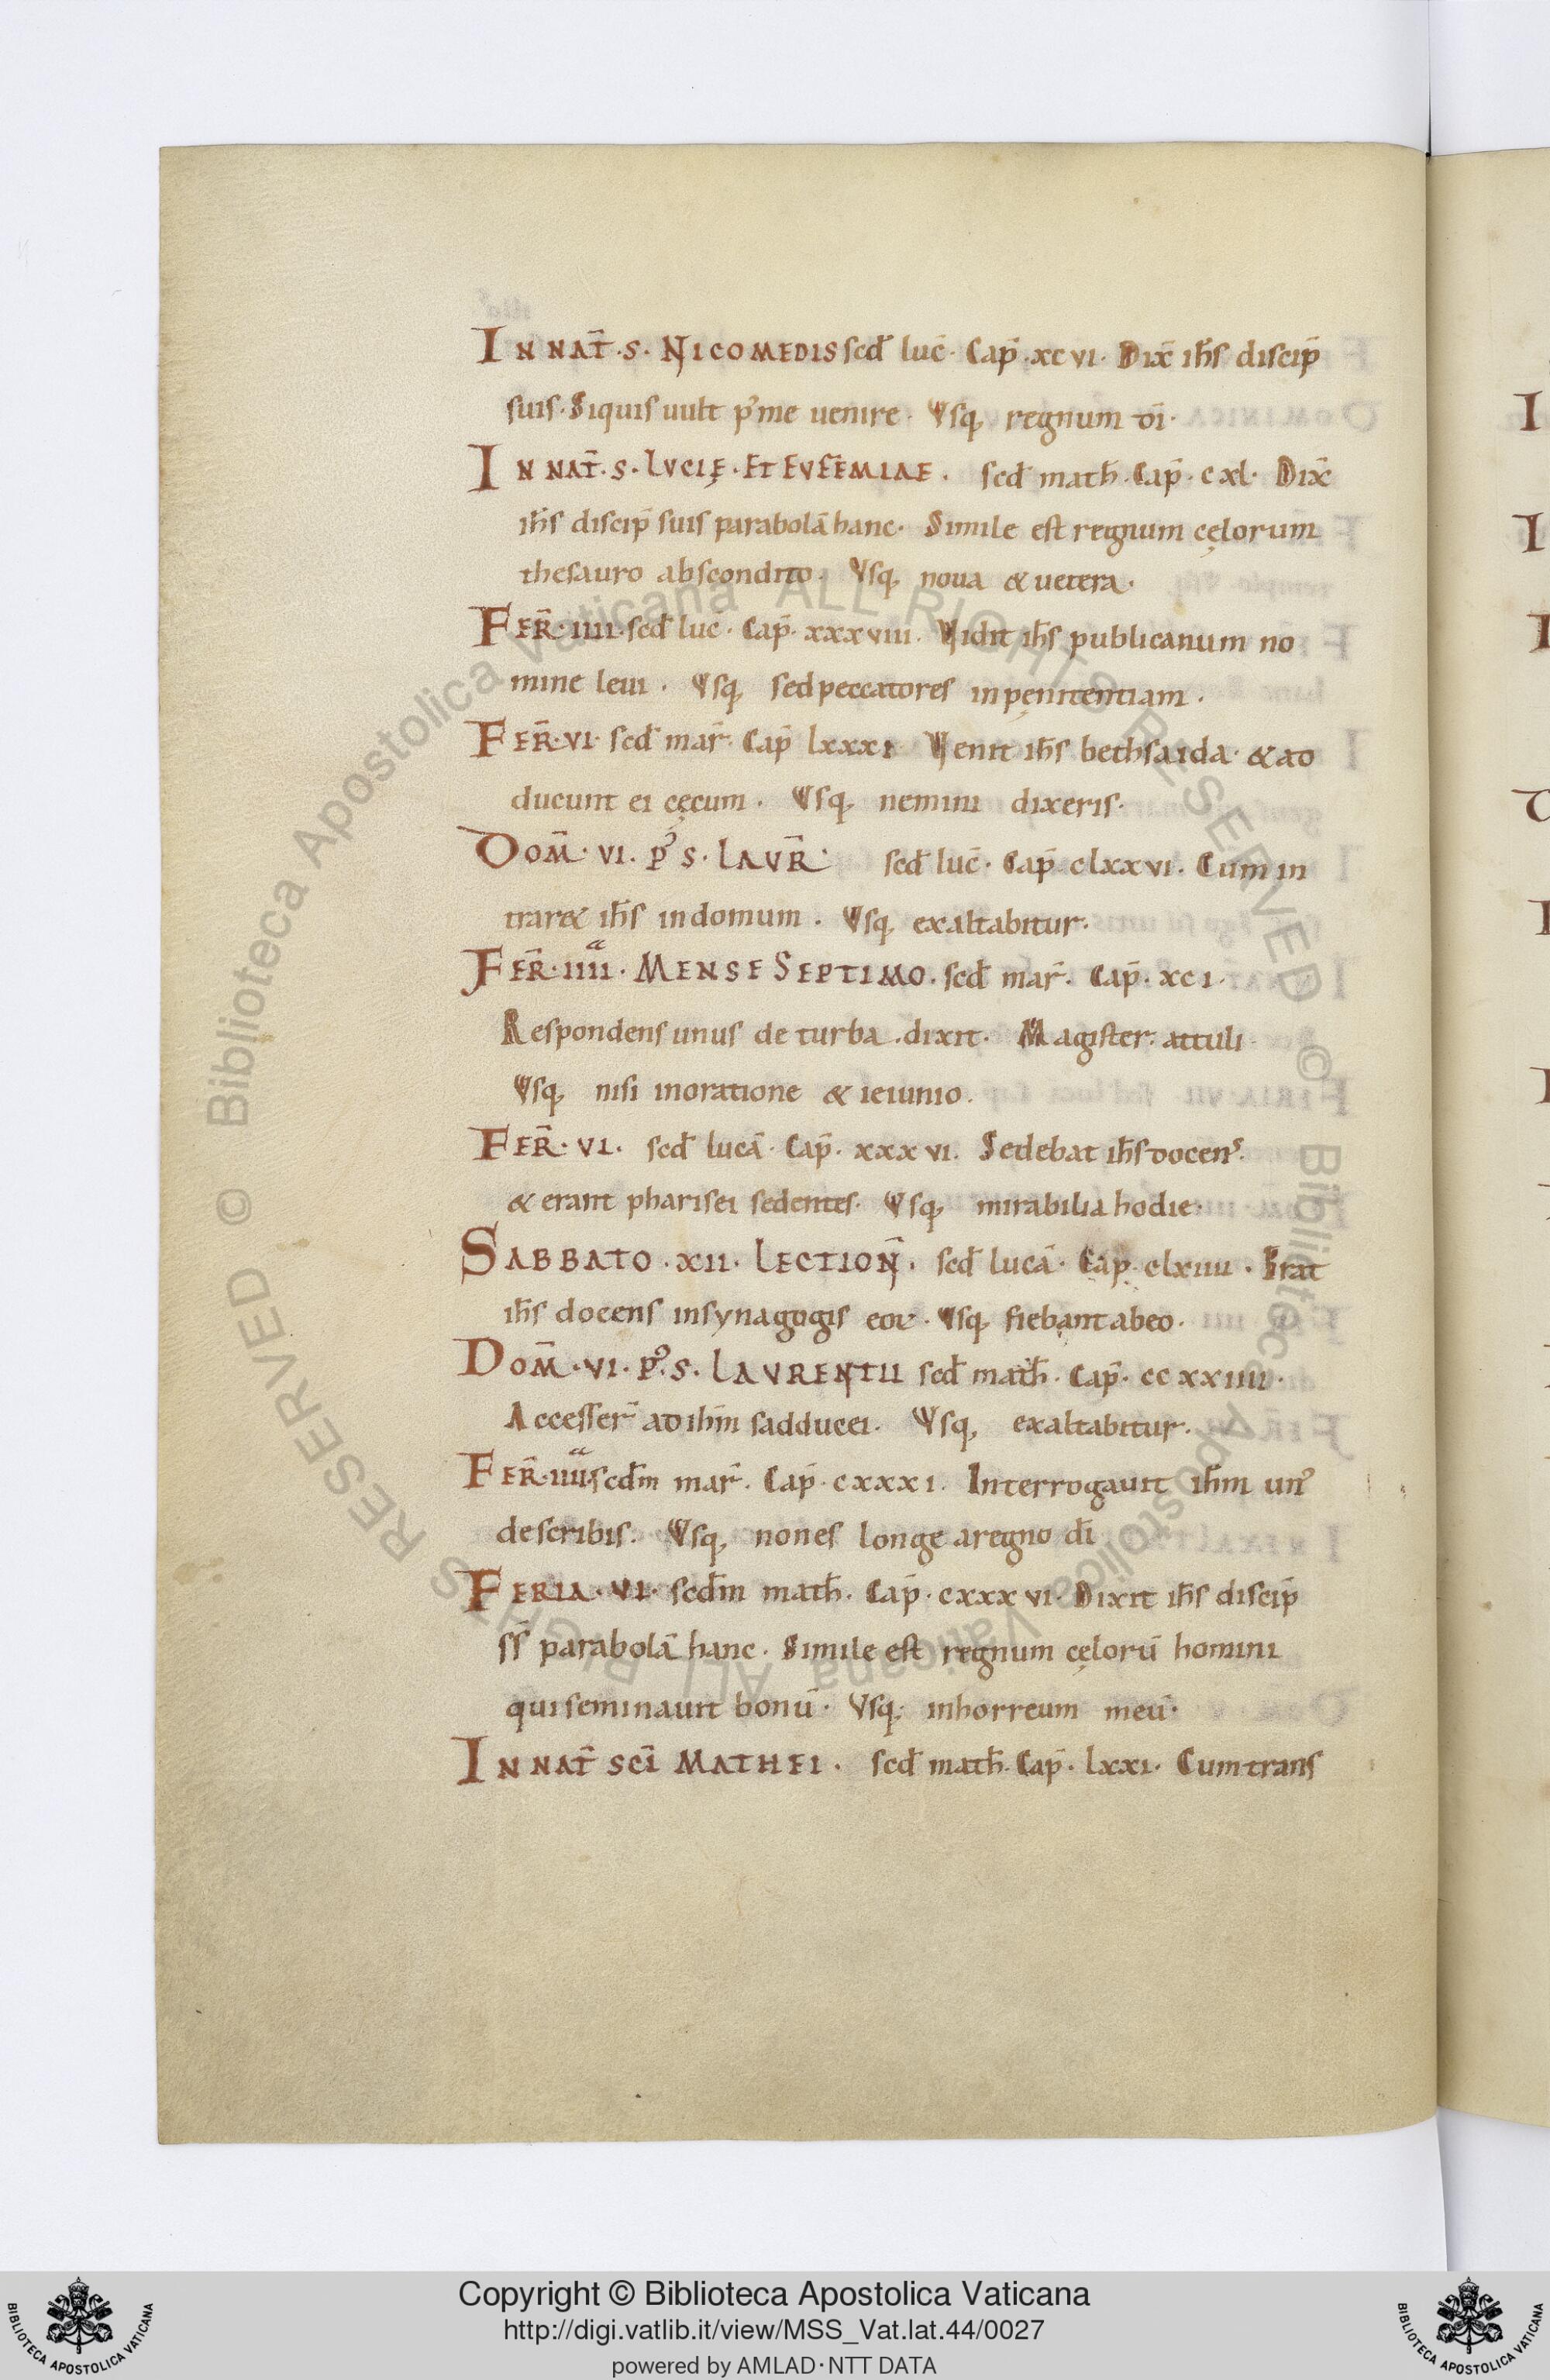 IN NAT̄ · S · NICOMEDIS scd̄ luc̄ · Cap̄ · xcvi · Dix̄ ih̄s discip̄
suis · Siquis uult p᾿ me uenire · Vsq, regnum dī ·
IN NAT̄ · S · LVCIĘ · ET EVFĒMIAE · scd̄ math̄ · Cap̄ · cxl · Dix̄
ih̄s discip̄ suis parabolā hanc · Simile est regnum cęlorum
thesauro abscondito · Vsq, noua & uetera ·
FER̄ · IIII · scd̄ luc̄ · Cap̄ · xxxviii · Vidit ih̄s publicanum no
mine leui · Vsq, sed peccatores in pęnitentiam ·
FER̄ · VI · scd̄ mar̄ · Cap̄ lxxxi · Venit ih̄s bethsaida · & ad
ducunt ei cęcum · Vsq, nemini dixeris ·
DOM̄ · VI · P᾿ S · LAVR̄ · scd̄ luc̄ · Cap̄ · clxxvi · Cum in
trar& ih̄s in domum · Vsq, exaltabitur ·
FER̄ · IIIIª · MENSE SEPTIMO · scd̄ mar̄ · Cap̄ · xci ·
Respondens unus de turba · dixit · Magister · attuli
Vsq, nisi in oratione & ieiunio ·
FER̄ · VI · scd̄ lucā · Cap̄ · xxxvi · Sedebat ih̄s docens ·
& erant pharisei sedentes · Vsq, mirabilia hodie ·
SABBATO · XII · LECTION̄ · scd̄ lucā · Cap̄ · clxiiii · Erat
ih̄s docens in synagogis eoꝝ · Vsq, fiebant abeo ·
DOM̄ · VI · P᾿ · S · LAVRENTII scd̄ math̄ · Cap̄ · ccxxiiii ·
Accesser̄ ad ih̄m sadducei · Vsq, exaltabitur ·
FER̄ · IIIIª · scdm̄ mar̄ · Cap̄ · cxxxi · Interrogauit ih̄m un᾿
de scribis · Vsq, non es longe a regno dī
FERIA · VI · scdm̄ math̄ · Cap̄ · cxxxvi · Dixit ih̄s discip̄
ss̄ parabolā hanc · Simile est regnum cęlorū homini
qui seminauit bonū · Vsq, in horreum meū ·
IN NAT̄ SCĪ MATHEI · scd̄ math̄ · Cap̄ · lxxi · Cum trans
Copyright © Biblioteca Apostolica Vaticana
http://digi.vatlib.it/view/MSS_Vat.lat.44/0027
powered by AMLAD·NTT DATA